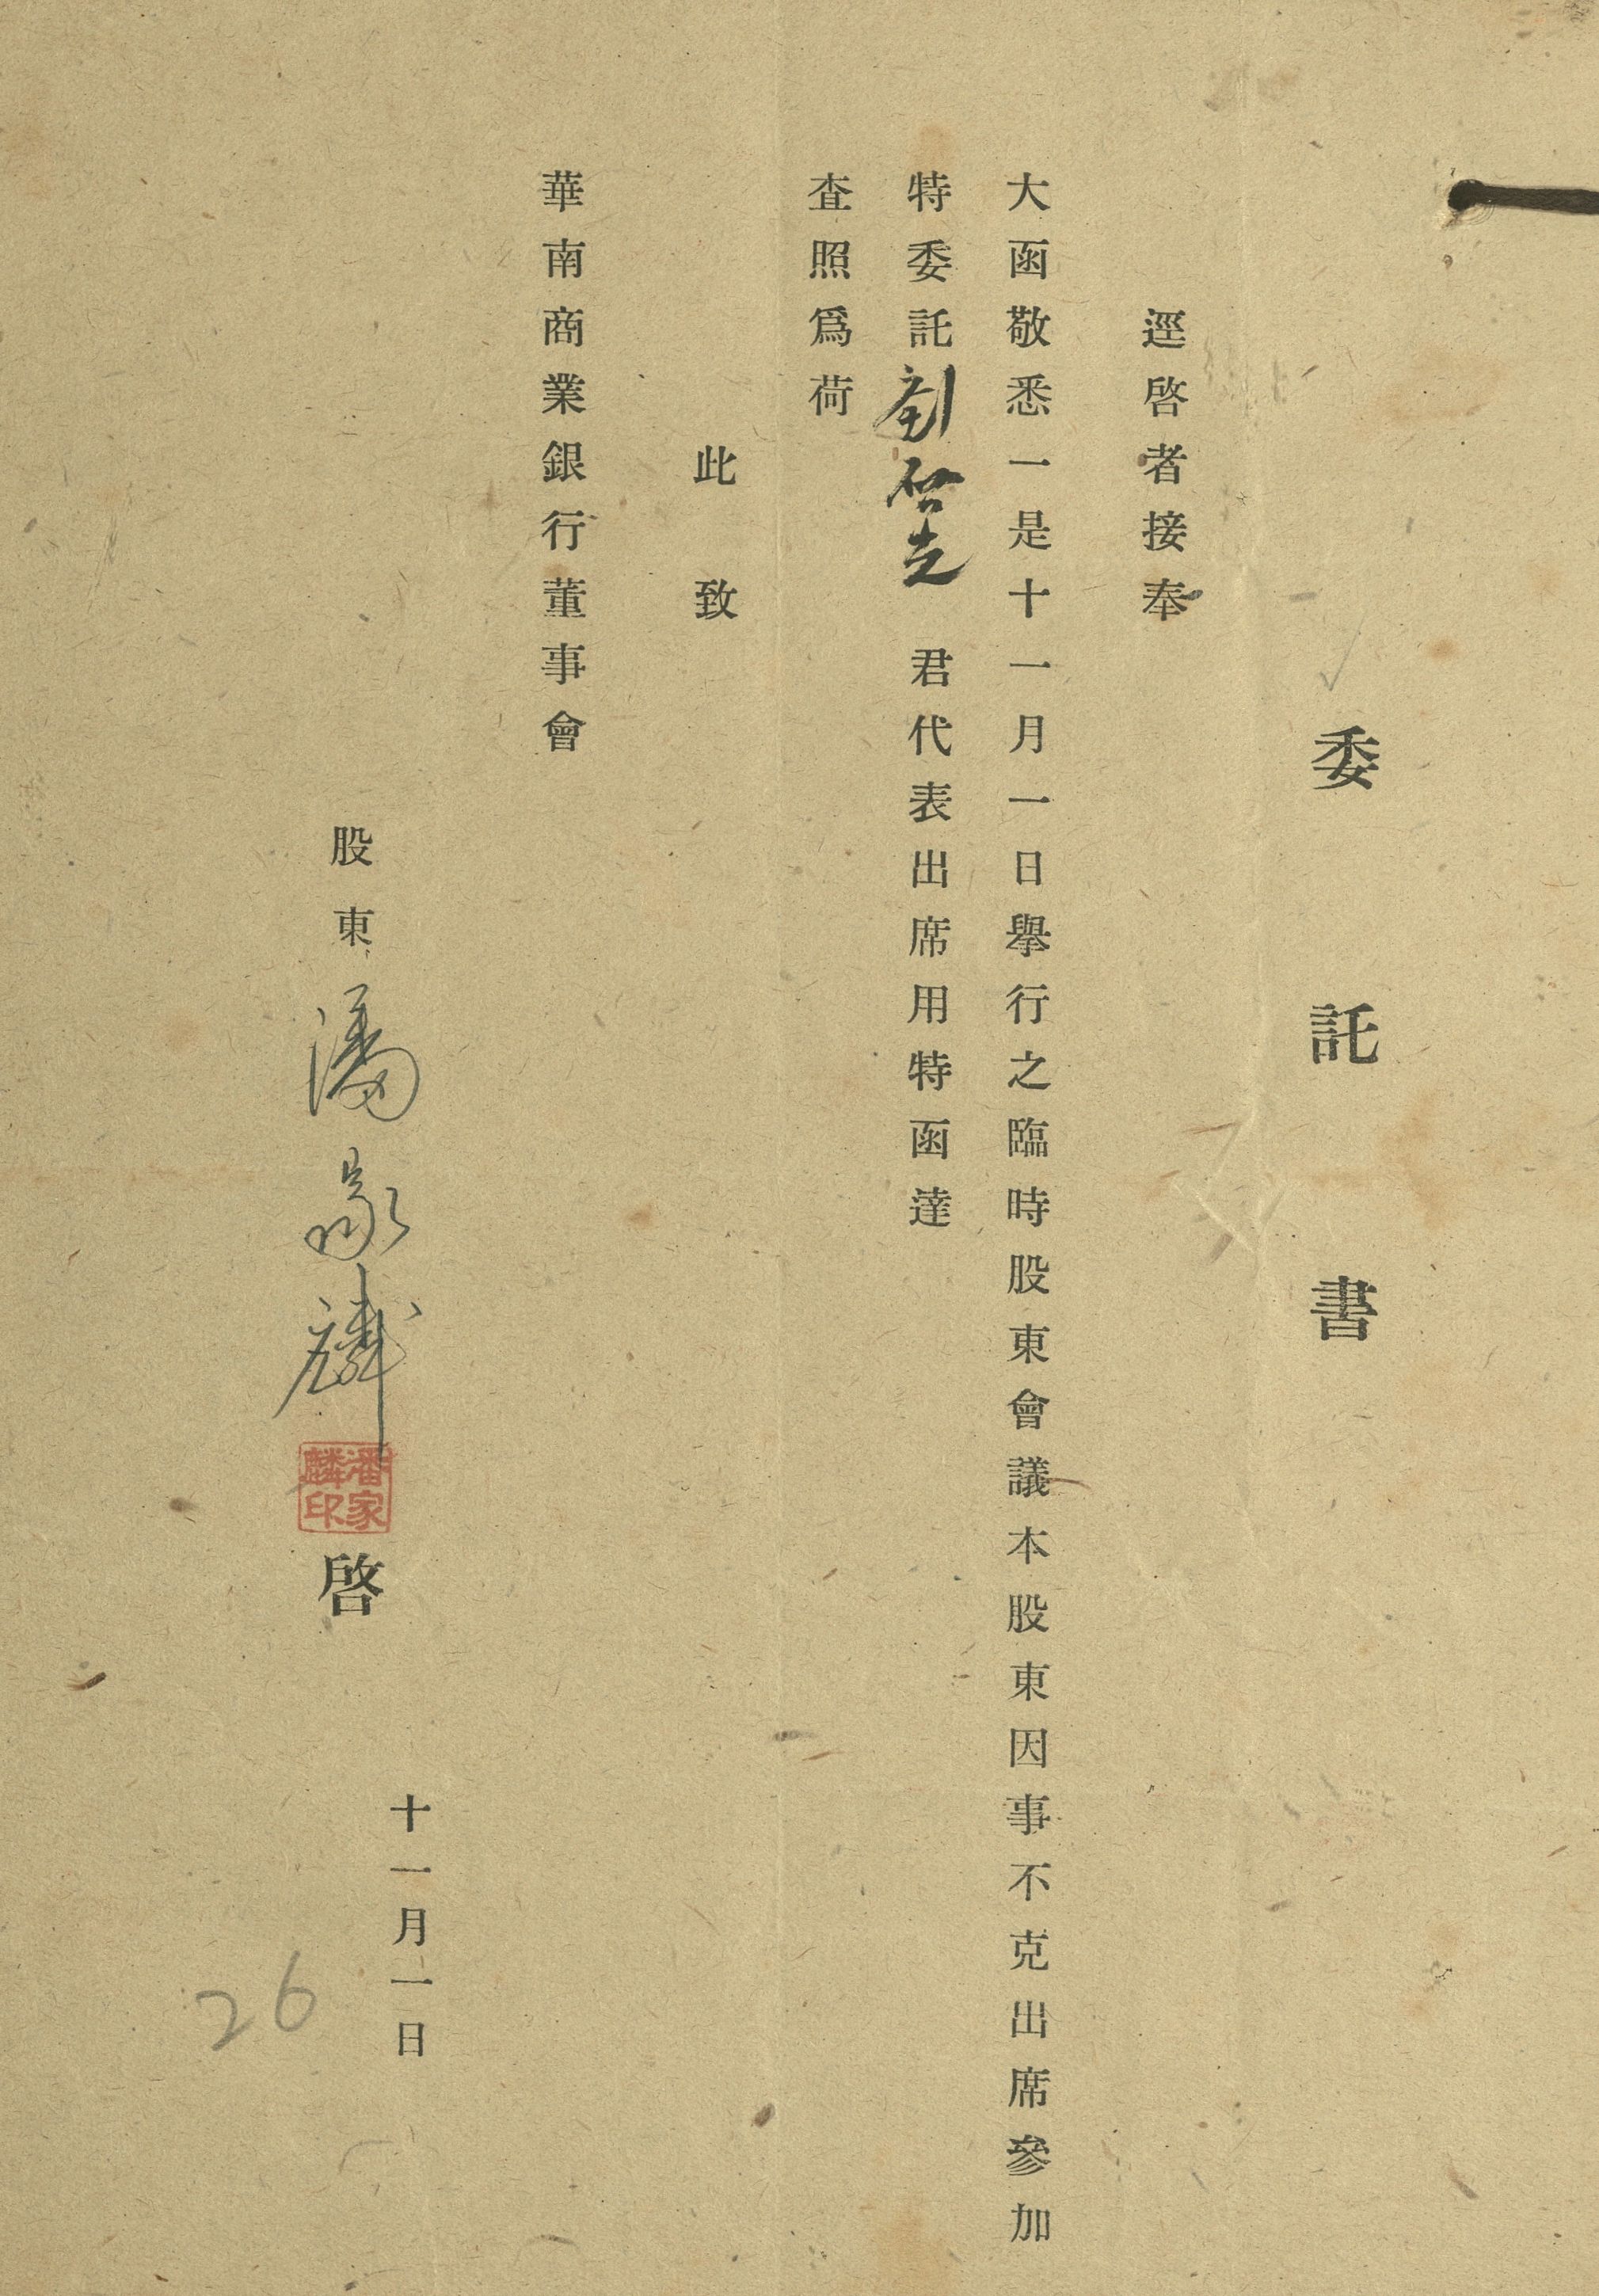 委託書
逕啓者接奉
大函敬悉一是十一月一日舉行之臨時股東會議本股東因事不克出席參加
特委託劉啓光君代表出席用特函達
查照爲荷
此致
華南商業銀行董事會
股東潘家麟啓
潘家麟印
十一月一日
26